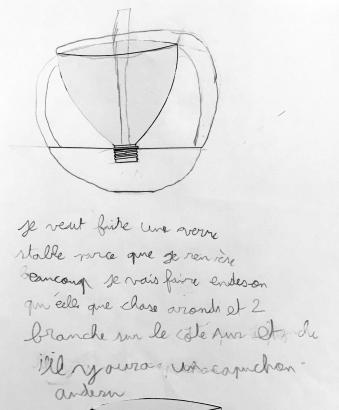 je veut faire une verre
stable parce que je renvèse
Beaucoup je vais faire endeson
quelle que chose aronds et 2
branche sur le côté pur et du
il y aura un capuchon
andesu